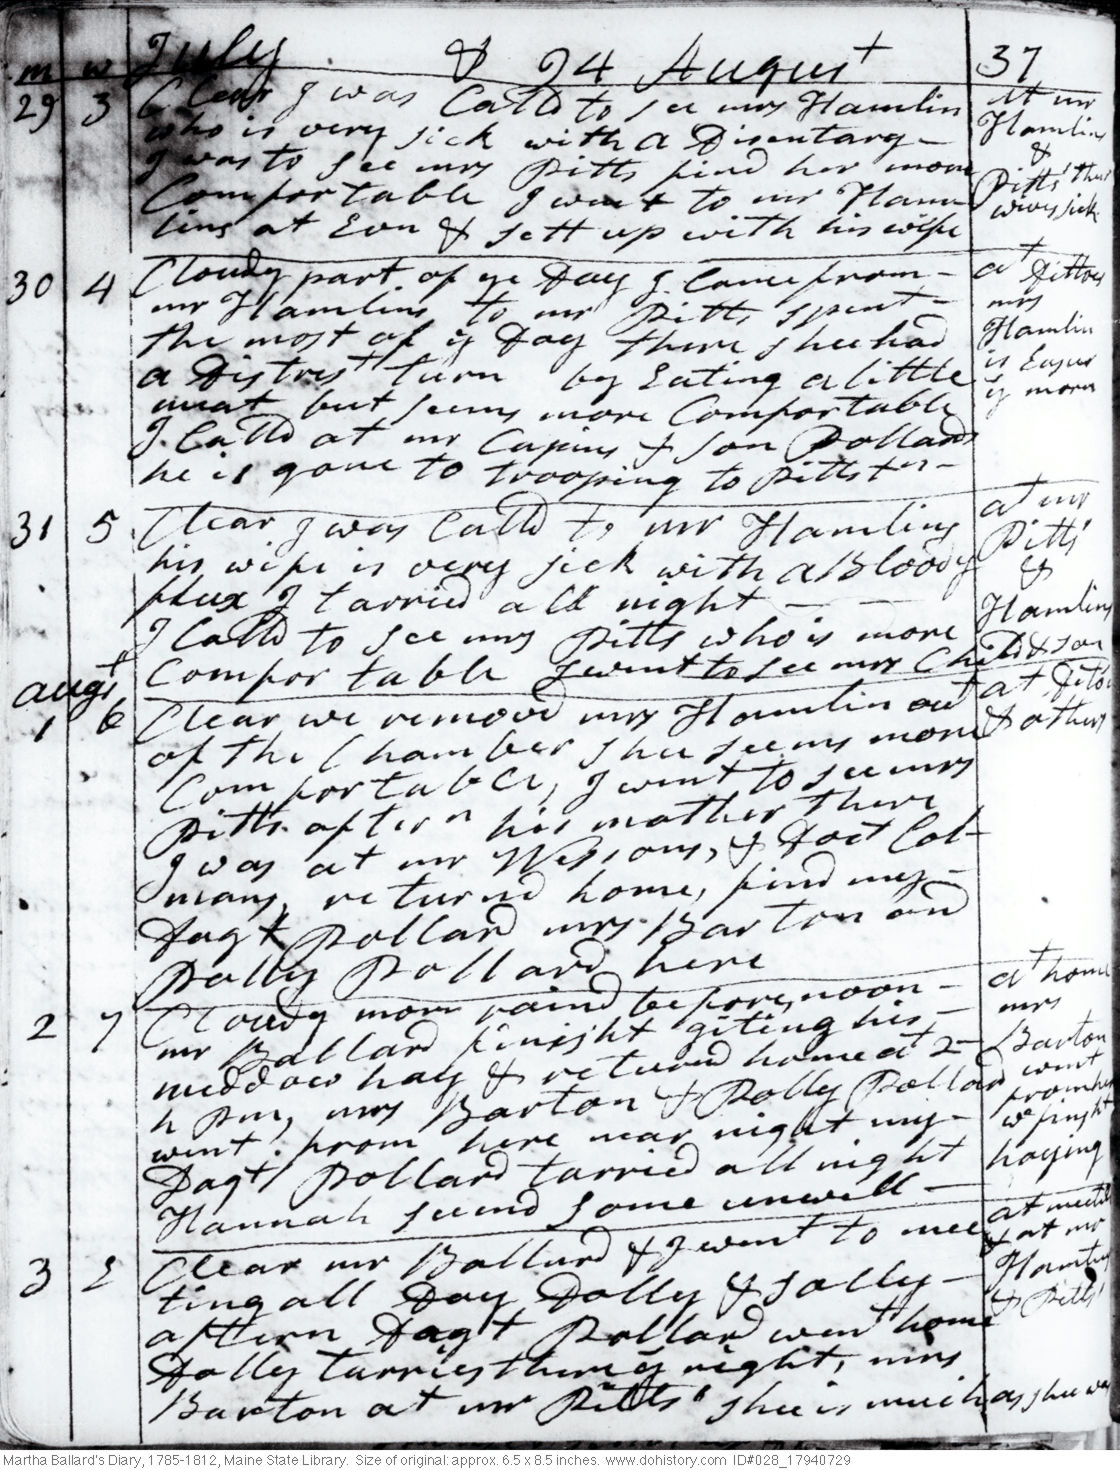 m w July & 94 August 37
29 3 Clear I was Calld to see mrs Hamlin
who is very sick with a Disentary —
I was to see mrs Pitts find her more
Comfortable I went to mr Ham
lins at Evn & sett up with his wife
at mr
Hamlins
&
Pitts' their
wives sick
30 4 Cloudy part of ye Day I Came from —
mr Hamlins to mr Pitts spent —
the most of ye Day there shee had
a Distrest turn by Eating a little
meat but seems more Comfortable
I Calld at mr Capins & son Pollards
he is gone to trooping to Pittstn —
at Dittoes
mrs
Hamlin
is Easier
ye morn
31 5 Clear I was Calld to mr Hamlins
his wife is very sick with a Bloody
flux I tarried all night — —
I Calld to see mrs Pitts who is more
Comfortable I went to see mrs Child & son
at mr
Pitts'
&
Hamlins
augt
1 6 Clear we removd mrs Hamlin out
of the Chamber shee seems more
Comfortable, I went to see mrs
Pitts aftern his mother there
I was at mr Wessons, & Doct Col-
mans, returnd home, find my —
Dagt Pollard mrs Barton and
Dolly Pollard here
at Ditos
& others
2 7 Cloudy morn raind before noon —
mr Ballard finisht giting his —
meddow hay & returnd home at 2 —
h pm, mrs Barton & Dolly Pollard
went from here near night my —
Dagt Pollard tarried all night
Hannah seemd some unwell —
at home
mrs
Barton
went
from here
we finisht
haying
3 E Clear mr Ballard & I went to mee
ting all Day Dolly & Sally —
aftern Dagt Pollard went home
Dolly tarries there ye night, mrs
Barton at mr Pitts' shee is much as she was
at meeting
& at mr
Hamlins
& Pitts'
Martha Ballard's Diary, 1785-1812, Maine State Library. Size of original: approx. 6.5 x 8.5 inches. www.dohistory.com ID#028_17940729